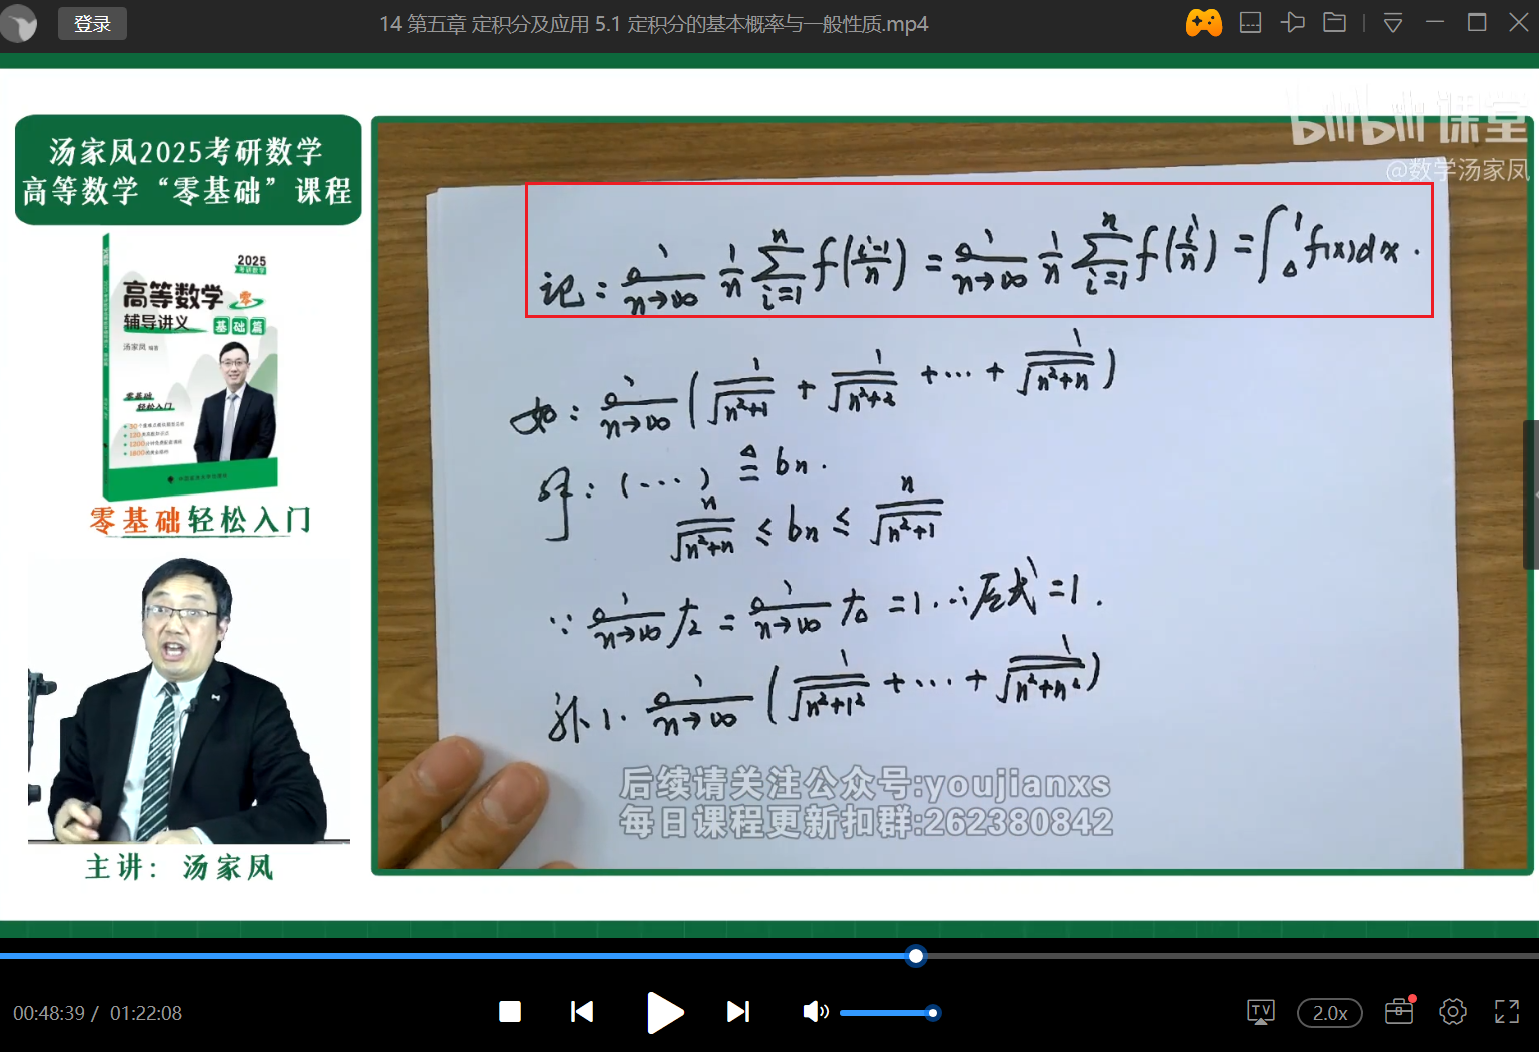 登录
14 第五章 定积分及应用 5.1 定积分的基本概率与一般性质.mp4
bilibili 课堂
@数学汤家凤
汤家凤2025考研数学
高等数学“零基础”课程
2025
考研数学
高等数学 零
辅导讲义 基础篇
汤家凤 编著
零基础
轻松入门
零基础轻松入门
主讲：汤家凤
记: lim n→∞ 1/n ∑ i=1 n f((i-1)/n) = lim n→∞ 1/n ∑ i=1 n f(i/n) = ∫₀¹ f(x)dx.
如: lim n→∞ (1/√(n²+1) + 1/√(n²+2) + ⋯ + 1/√(n²+n))
解: (⋯) ≜ bn.
n/√(n²+n) ≤ bn ≤ n/√(n²+1)
∵ lim n→∞ 左 = lim n→∞ 右 = 1. ∴ 原式 = 1.
例1. lim n→∞ (1/√(n²+1²) + ⋯ + 1/√(n²+n²))
后续请关注公众号:youjianxs
每日课程更新扣群:262380842
00:48:39 / 01:22:08
TV
2.0x